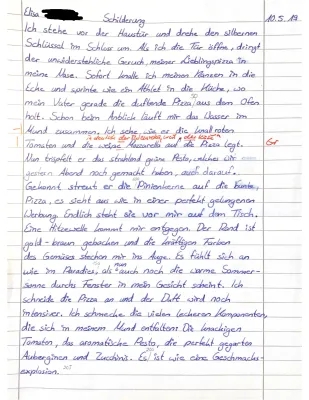 Elisa
Schilderung
10.5.19
Ich stehe vor der Haustür und drehe den silbernen
Schlüssel im Schloss um. Als ich die Tür öffne, dringt
der unwiderstehliche Geruch meiner Lieblingspizza in
meine Nase. Sofort knalle ich meinen Ranzen in die
Ecke und sprinte wie ein Athlet in die Küche, wo
mein Vater gerade die duftende Pizza aus dem Ofen
holt. Schon beim Anblick läuft mir das Wasser im
Mund zusammen. Ich sehe wie er die knallroten
Tomaten und die weiße Mozzarella auf die Pizza legt.
Gr
Nun tröpfelt er das strahlend grüne Pesto, welches wir
gestern Abend noch gemacht haben, auch darauf.
Gekonnt streut er die Pinienkerne auf die bunte
Pizza, es sieht aus wie in einer perfekt gelungenen
Werbung. Endlich steht sie vor mir auf dem Tisch.
Eine Hitzewelle kommt mir entgegen. Der Rand ist
gold-braun gebacken und die kräftigen Farben
des Gemüses stechen mir ins Auge. Es fühlt sich an
wie im Paradies, als nun auch noch die warme Sommer-
sonne durchs Fenster in mein Gesicht scheint. Ich
schneide die Pizza an und der Duft wird noch
intensiver. Ich schmecke die vielen leckeren Komponenten,
die sich in meinem Mund entfalten: Die knackigen
Tomaten, das aromatische Pesto, die perfekt gegarten
Auberginen und Zucchinis. Es ist wie eine Geschmacks-
explosion.